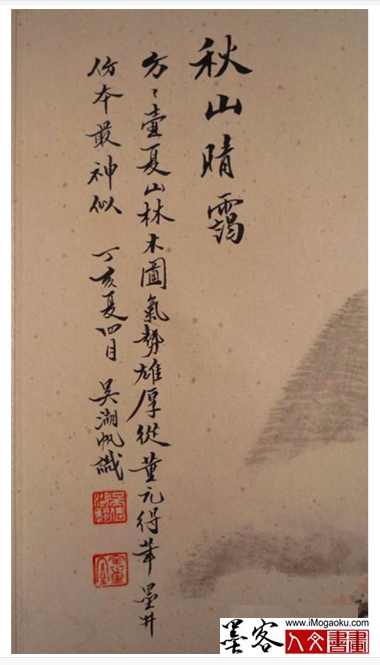 秋山晴靄
方々壺夏山林木圖氣勢雄厚從董元得茟墨井
仿本最神似　丁亥夏四月　吳湖帆識
墨客
人文書畫
www.iMogaoku.com